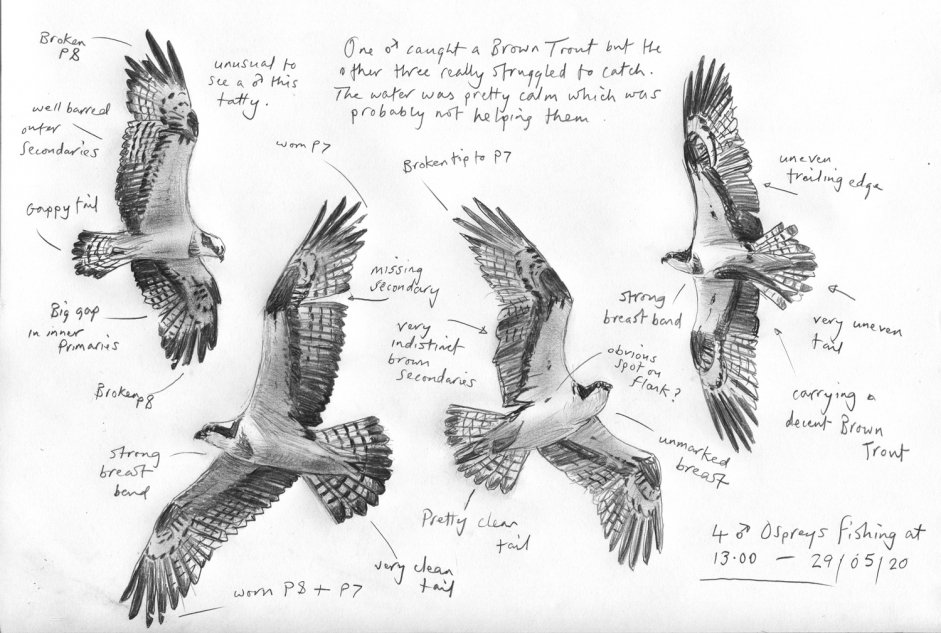 Broken
P8
unusual to
see a ♂ this
tatty.
One ♂ caught a Brown Trout but the
other three really struggled to catch.
The water was pretty calm which was
probably not helping them.
well barred
outer
secondaries
worn P7
Broken tip to P7
uneven
trailing edge
Gappy tail
missing
secondary
strong
breast band
Big gap
in inner
primaries
very
indistinct
brown
secondaries
obvious
spot on
flank?
very uneven
tail
Broken P8
carrying a
decent Brown
Trout
strong
breast
band
unmarked
breast
Pretty clean
tail
very clean
tail
worn P8 + P7
4 ♂ Ospreys fishing at
13.00 — 29/05/20